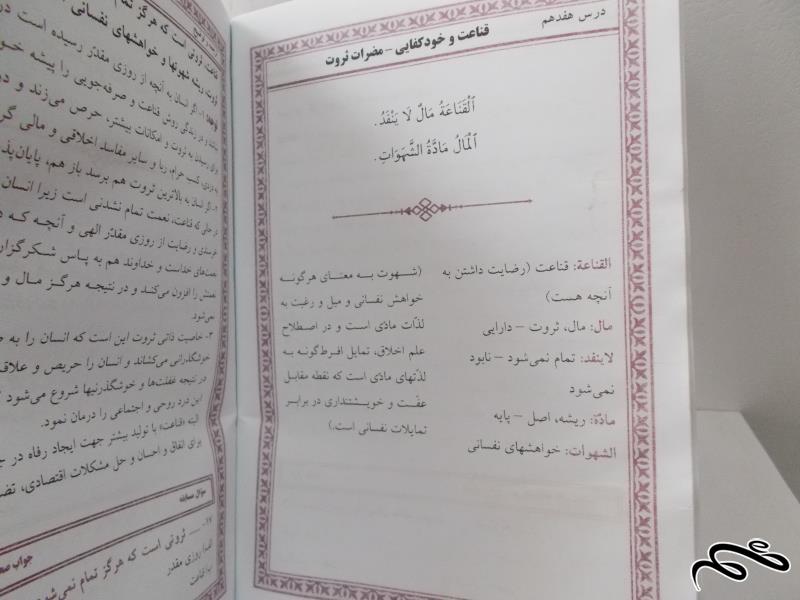 درس هفدهم
قناعت و خودکفایی – مضرات ثروت
اَلْقَنَاعَةُ مَالٌ لَا يَنْفَدُ.
اَلْمَالُ مَادَّةُ الشَّهَوَاتِ.
القناعة: قناعت (رضایت داشتن به
آنچه هست)
مال: مال، ثروت – دارایی
لاینفد: تمام نمی‌شود – نابود
نمی‌شود
مادّة: ریشه، اصل – پایه
الشهوات: خواهشهای نفسانی
(شهوت به معنای هرگونه
خواهش نفسانی و میل و رغبت به
لذّات مادّی است و در اصطلاح
علم اخلاق، تمایل افراط‌گونه به
لذّتهای مادّی است که نقطه مقابل
عفّت و خویشتنداری در برابر
تمایلات نفسانی است.)
قناعت، ثروتی است که هرگز تمام
ثروت، ریشه شهوتها و خواهشهای نفسانی
۱- اگر انسان به آنچه از روزی مقدّر رسیده است
و در زندگی روش قناعت و صرفه‌جویی را پیشه
برای رسیدن به ثروت و امکانات بیشتر، حرص می‌زند و
کسب حرام، ربا و سایر مفاسد اخلاقی و مالی
۲- اگر انسان به بالاترین ثروت هم برسد باز هم،
در حالی که قناعت، نعمت تمام نشدنی است زیرا انسان
خرسندی و رضایت از روزی مقدّر الهی و آنچه که
نعمت‌های خداست و خداوند هم به پاس شکرگزار
نعمتش را افزون می‌کند و در نتیجه هرگز مال و
نمی‌شود.
۳- خاصیت ذاتی ثروت این است که انسان را به
خوشگذرانی می‌کشاند و انسان را حریص و
در نتیجه غفلت‌ها و خوشگذرنیها شروع می‌شود
این درد روحی و اجتماعی را درمان نمود.
البته «قناعت» با تولید بیشتر جهت ایجاد رفاه در
برای انفاق و احسان و حل مشکلات اقتصادی،
سؤال مسابقه
۱۷- .... ثروتی است که هرگز تمام نمی‌شود
الف) روزی مقدر
ب) قناعت
جواب